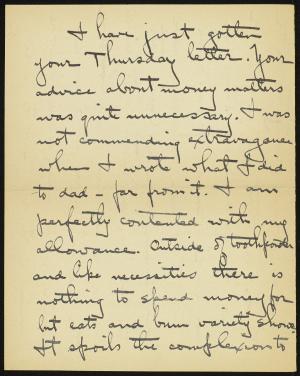 I have just gotten
your Thursday letter. Your
advice about money matters
was quite unnecessary. I was
not commending extravagance
when I wrote what I did
to dad - far from it. I am
perfectly contented with my
allowance. Outside of toothpowder
and like necessities there is
nothing to spend money for
but eats and bum variety shows.
It spoils the complexion to